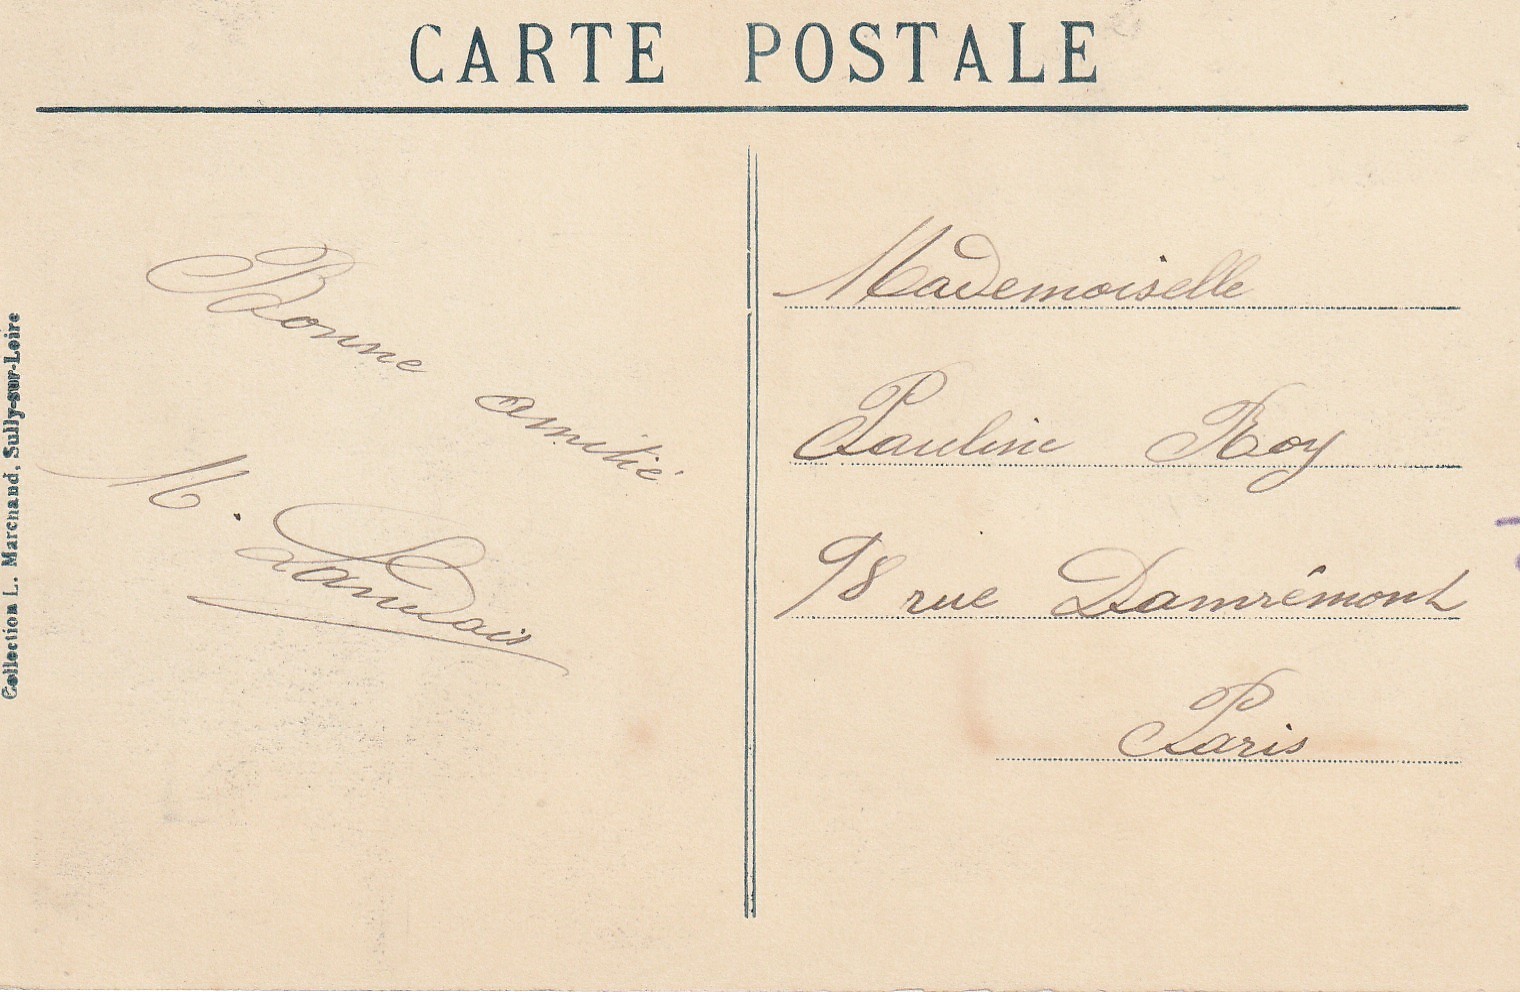 CARTE POSTALE
Collection L. Marchand, Sully-sur-Loire
Bonne amitié
M. Landais
Mademoiselle
Pauline Roy
98 rue Damrémont
Paris